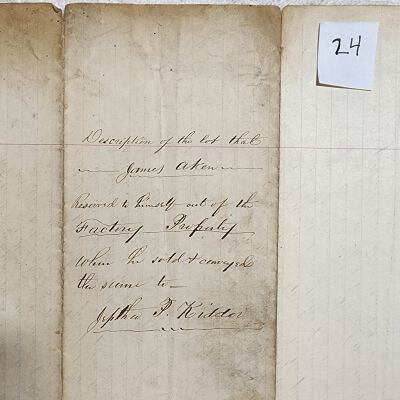 24
Description of the lot that
James Aken
Reserved to himself out of the
Factory Property
when he sold & conveyed
the same to
Jeptha P. Kidder